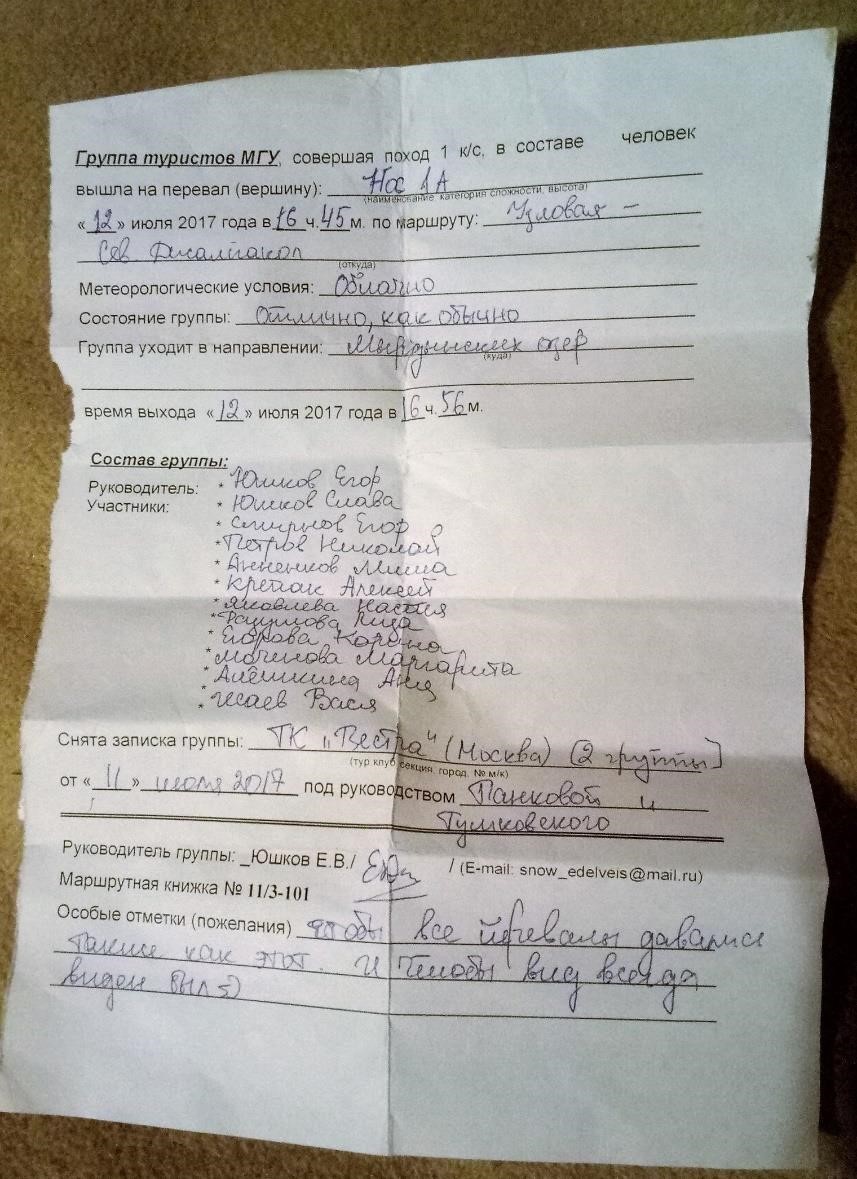 Группа туристов МГУ, совершая поход 1 к/с, в составе человек
вышла на перевал (вершину): Нос 1А
(наименование категория сложности, высота)
«12» июля 2017 года в 16 ч. 45 м. по маршруту: Узловая –
Сев Джалпакол
(откуда)
Метеорологические условия: Облачно
Состояние группы: Отлично, как обычно
Группа уходит в направлении: Мырдынских озер
(куда)
время выхода «12» июля 2017 года в 16 ч. 56 м.
Состав группы:
Руководитель: * Юшков Егор
Участники: * Юшков Слава
* Смирнов Егор
* Петров Николай
* Анненков Миша
* Алексей
* Яковлева Настя
* Лиза
* Егорова Карина
* Моченова Маргарита
* Алёшкина Аня
* Исаев Вася
Снята записка группы: ТК "Вестра" (Москва) (2 группы)
(тур клуб секция, город, № м/к)
от «11» июля 2017 под руководством Панковой и
Тумковского
Руководитель группы: _Юшков Е.В./ / (E-mail: snow_edelveis@mail.ru)
Маршрутная книжка № 11/3-101
Особые отметки (пожелания) чтобы все перевалы давались
такие как этот. И чтобы вид всегда
виден был :)